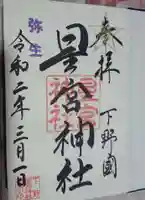 奉拝
下野國
星宮神社
弥生
令和二年三月一日